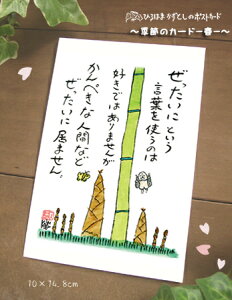 ひろはまかずとしのポストカード
～季節のカード－春－～
ぜったいにという
言葉を使うのは
好きではありませんが
かんぺきな人間など
ぜったいに居ません。
10×14.8cm